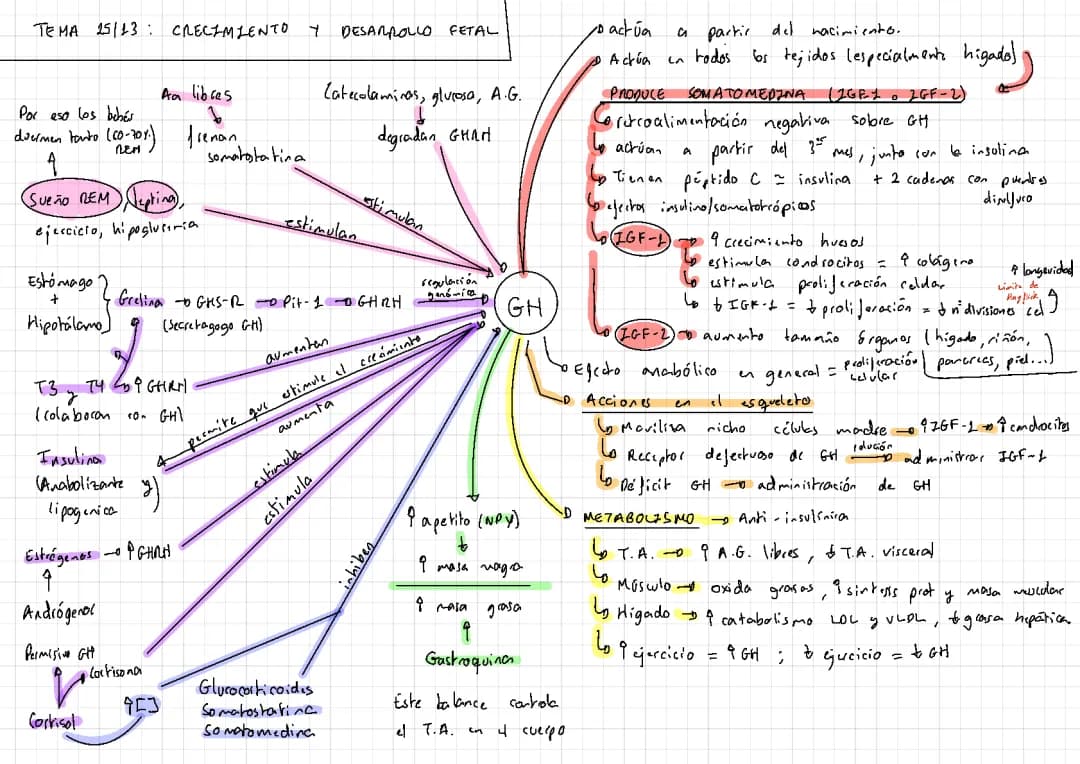 TEMA 25/13: CRECIMIENTO Y DESARROLLO FETAL
Aa libres
frenan
somatostatina
Catecolaminas, glucosa, A.G.
degradan GHRH
Por eso los bebés
duermen tanto (60-70%
REM)
Sueño REM, leptina,
ejercicio, hipoglucemia
estimulan
estimulan
Estómago
+
Hipotálamo
Grelina → GHS-R → Pit-1 → GHRH
(Secretagogo GH)
regulación
genómica
T3 y T4 ↑ GHRH
(colaboran con GH)
aumentan
permite que estimule el crecimiento
aumenta
Insulina
(Anabolizante y
lipogenica)
estimula
estimula
Estrógenos → ↑ GHRH
↑
Andrógenos
Permisivo GH
Cortisona
Cortisol
↑[]
inhiben
Glucocorticoides
Somatostatina
Somatomedina
GH
↑ apetito (NPY)
↓
↑ masa magra
↑ masa grasa
↑
Gastroquina
Este balance controla
el T.A. en el cuerpo
actúa a partir del nacimiento.
Actúa en todos los tejidos (especialmente hígado)
PRODUCE SOMATOMEDINA (IGF-1 o IGF-2)
retroalimentación negativa sobre GH
actúan a partir del 3er mes, junto con la insulina
Tienen péptido C ≃ insulina + 2 cadenas con puentes
disulfuro
efectos insulino/somatotrópicos
IGF-1 → ↑ crecimiento huesos
estimula condrocitos = ↑ colágeno
estimula proliferación celular
↓ IGF-1 = ↓ proliferación = ↓ nº divisiones cel
↑ longevidad
Límite de
Hayflick
IGF-2 → aumento tamaño órganos (hígado, riñón,
páncreas, piel...)
Efecto anabólico en general = proliferación
celular
Acciones en el esqueleto
Moviliza nicho células madre → ↑ IGF-1 → ↑ condrocitos
Receptor defectuoso de GH → solución administrar IGF-1
Déficit GH → administración de GH
METABOLISMO → Anti-insulínica
T.A. → ↑ A.G. libres, ↓ T.A. visceral
Músculo → oxida grasas, ↑ síntesis prot y masa muscular
Hígado → ↑ catabolismo LDL y VLDL, ↓ grasa hepática
↑ ejercicio = ↑ GH ; ↓ ejercicio = ↓ GH